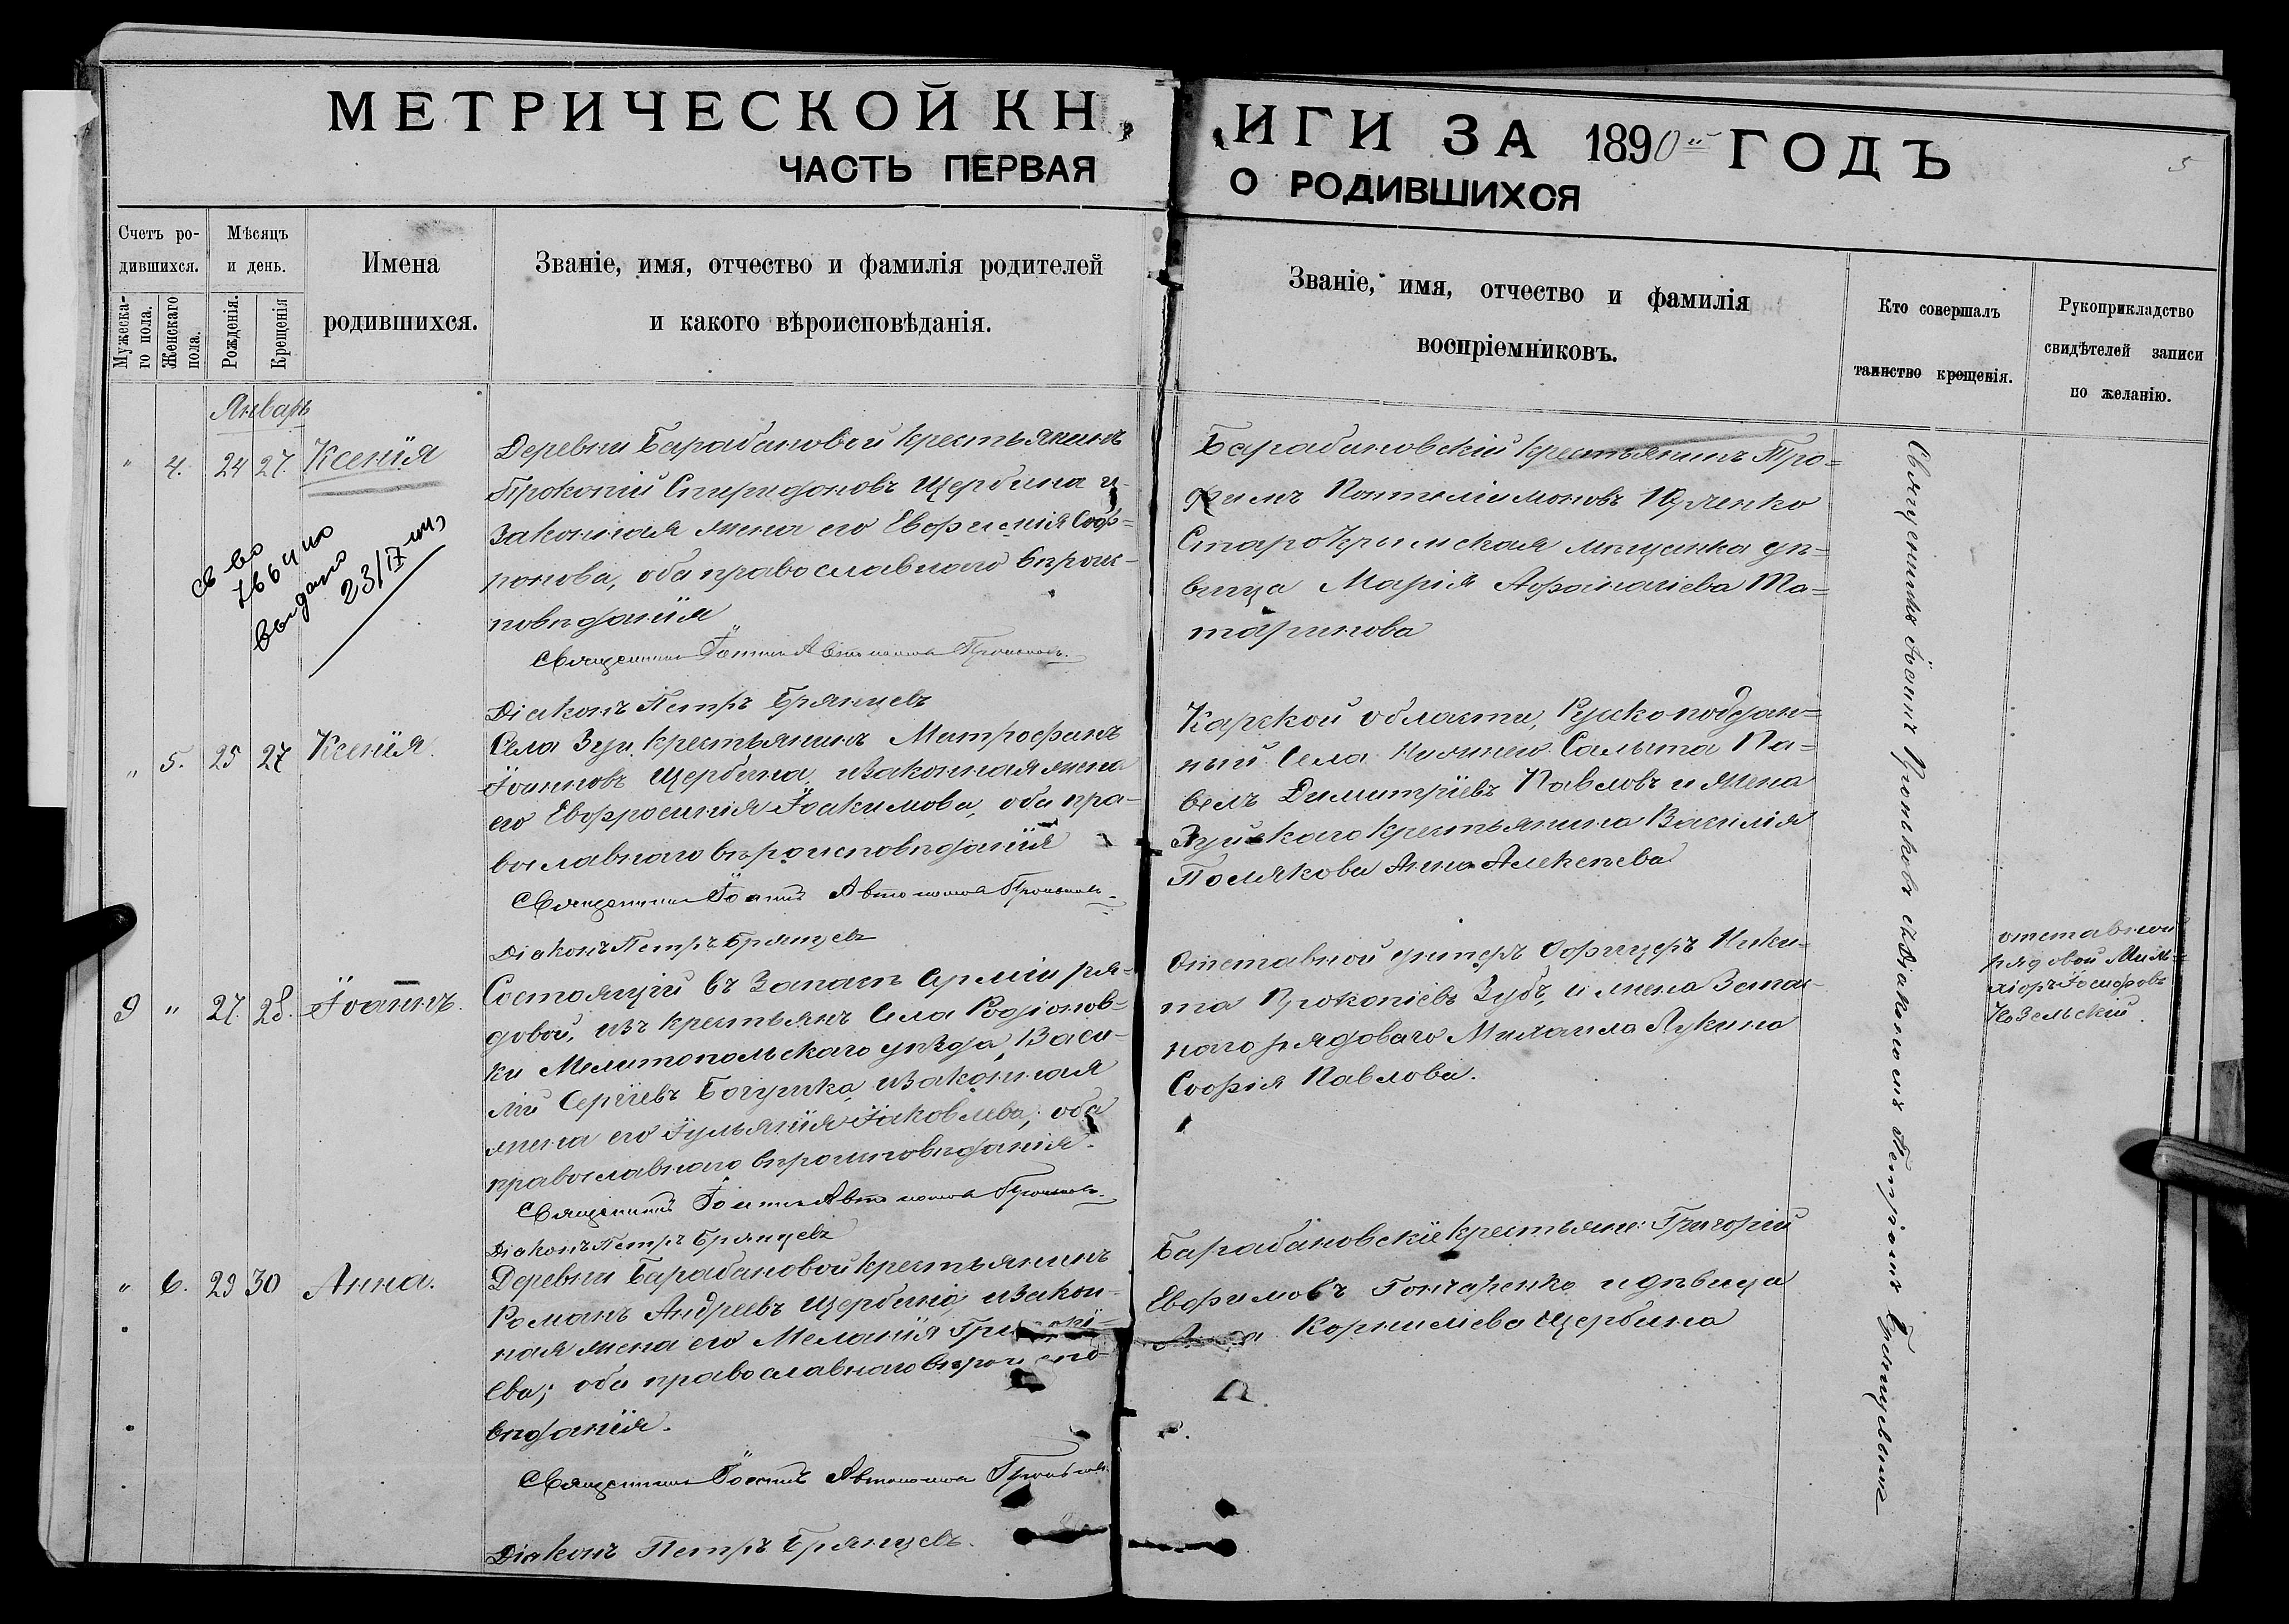 МЕТРИЧЕСКОЙ КНИГИ ЗА 1890 ГОДЪ
5
ЧАСТЬ ПЕРВАЯ О РОДИВШИХСЯ
Счетъ ро-
дившихся.
Мужеска-
го пола.
Женскаго
пола.
Мѣсяцъ
и день.
Рожденія.
Крещенія
Имена
родившихся.
Званіе, имя, отчество и фамилія родителей
и какого вѣроисповѣданія.
Званіе, имя, отчество и фамилія
воспріемниковъ.
Кто совершалъ
таинство крещенія.
Рукоприкладство
свидѣтелей записи
по желанію.
Январь
" 4. 24 27. Ксенія
Деревни Барабановой крестьянинъ
Прокопій Спиридоновъ Щербина и
законная жена его Евфиміѧ Соф=
ронова, оба православнаго вѣроис-
повѣданія
Священникъ Іоаннъ Автономовъ Прониковъ
Діаконъ Петръ Брянцевъ
Барабановскій крестьянинъ Тро=
фимъ Пантелімоновъ Юрченко
Старокрымская мѣщанка дѣ=
вица Марія Афанасіева Та=
таринова
св во
выдано
23/IX
" 5. 25 27 Ксенія.
Села Зуи крестьянинъ Митрофанъ
Іоанновъ Щербина, и законная жена
его Евфросинія Іоакимова, оба пра-
вославнаго вѣроисповѣданія
Священникъ Іоаннъ
Діаконъ Петръ Брянцевъ
Карской области, Русскоподдан=
ный Села Нижнего Салыта Па=
велъ Димитріевъ Павловъ и жена
Зуйскаго крестьянина Василія
Полякова Анна Алексѣева
9 " 27. 28. Іоаннъ.
Состоящій въ Запасѣ Арміи ря-
довой, изъ крестьянъ Села Родіонов-
ки Мелитопольскаго уѣзда, Васи-
лій Сергіевъ Богушка, и законная
жена его Іульянія Іаковлева; оба
православнаго вѣроисповѣданія.
Священникъ Іоаннъ
Діаконъ Петръ Брянцевъ
Отставной унтеръ Офицеръ Ники-
та Прокопіевъ Зубъ, и жена Запас-
наго рядоваго Михаила Лукина
Софія Павлова.
отставной
рядовой
Іосифовъ
Козельскій.
" 6. 29 30 Анна.
Деревни Барабановой крестьянинъ
Романъ Андреевъ Щербина и закон-
ная жена его Меланія
ева; оба православнаго вѣроиспо-
вѣданія.
Священникъ Іоаннъ
Діаконъ Петръ Брянцевъ.
Барабановскіе крестьяне: Григорій
Евфимовъ Гончаренко и дѣвица
Корниліева Щербина
Священникъ Іоаннъ и Діакономъ Петромъ Брянцевымъ